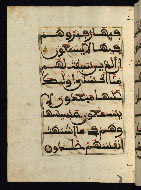 فيها زفير وهم
فيها لا يسمعون
إن الذين سبقت لهم
منا الحسنى أولئك
عنها مبعدون لا
يسمعون حسيسها
وهم في ما اشتهت
أنفسهم خالدون